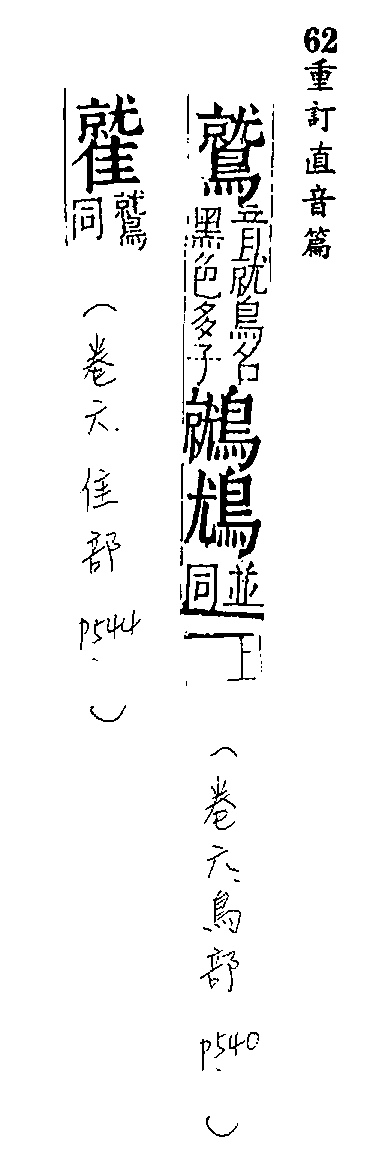 62重訂直音篇
鷲
音就鳥名
黑色多子
並
同
上
(卷六.鳥部 p.540)
鷲
同
(卷六.隹部 p.544)